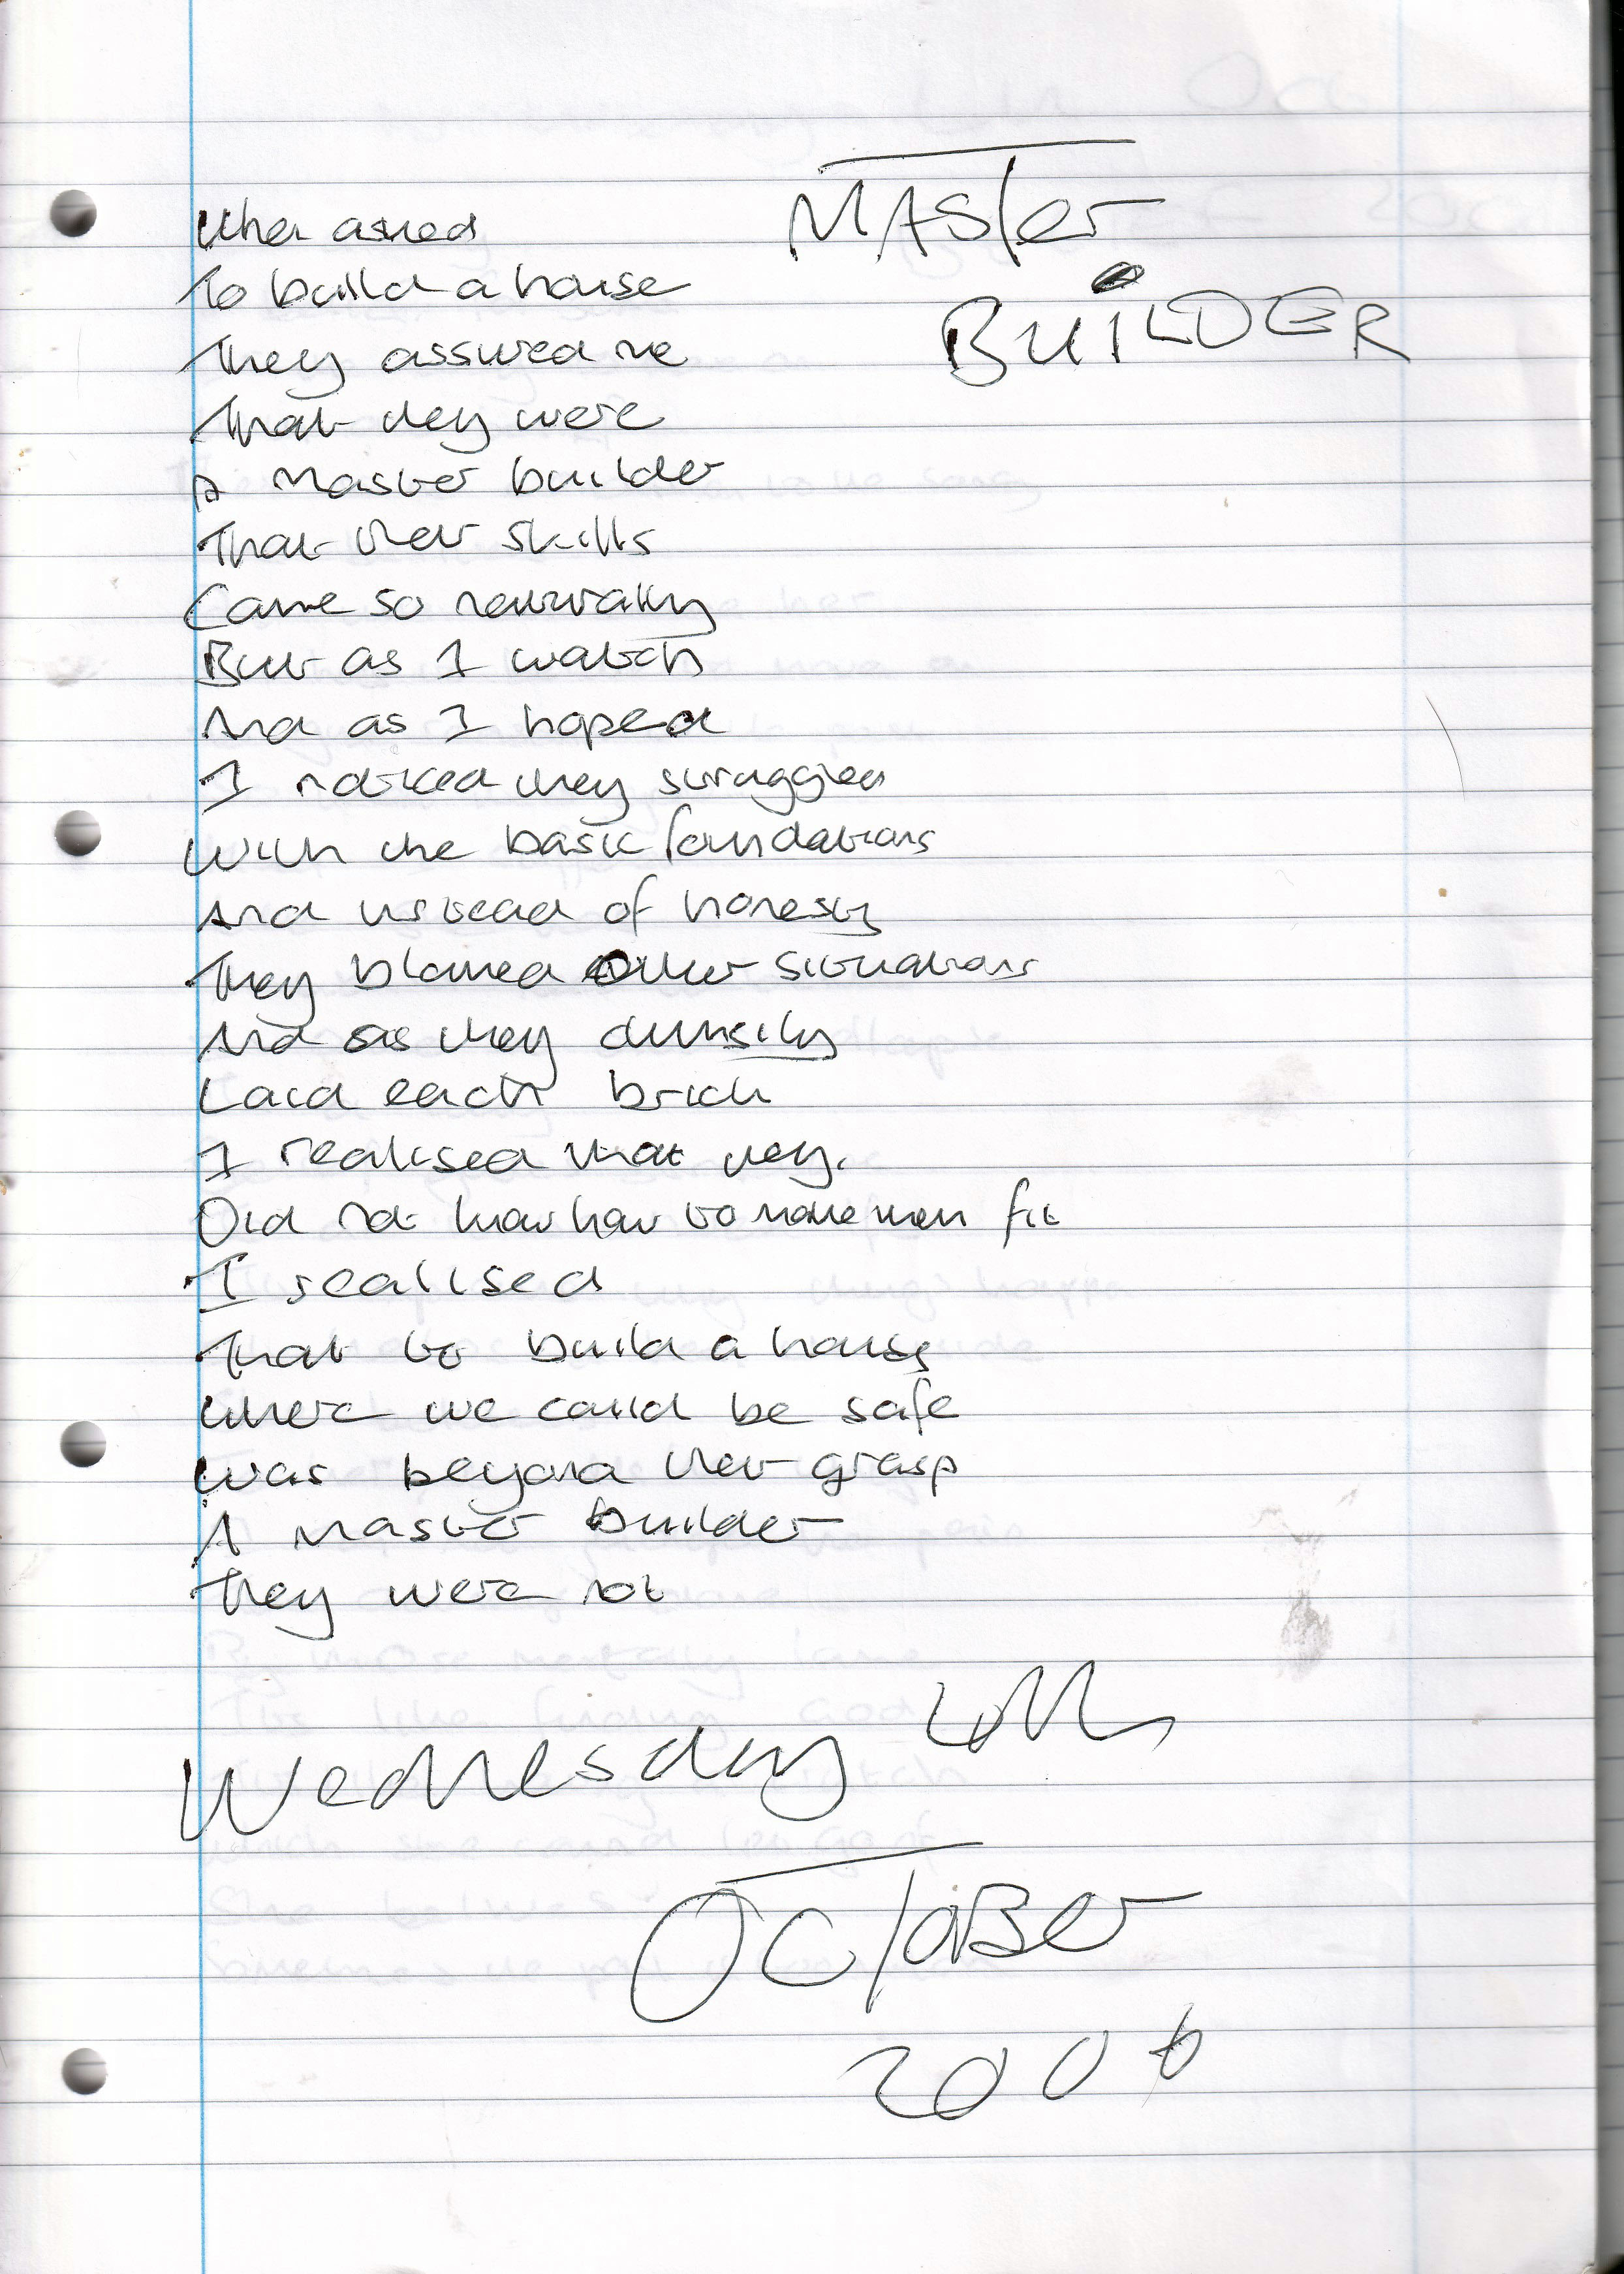 MASTer
BUiLDER
When asked
To build a house
They assured me
That they were
A master builder
That their skills
Came so naturally
But as I watch
And as I hoped
I noticed they struggled
With the basic foundations
And instead of honesty
They blamed other situations
And as they clumsily
Laid each brick
I realised that they.
Did not know how to make them fit
I realised
That to build a house
Where we could be safe
Was beyond their grasp
A master builder
They were not
Wednesday 4th
OctoBer
2006